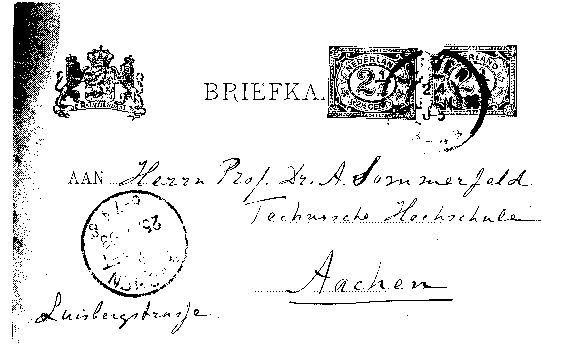 BRIEFKA
NEDERLAND
2½
AAN Herrn Prof. Dr. A. Sommerfeld
Technische Hochschule
Aachen
Luisbergstrasse